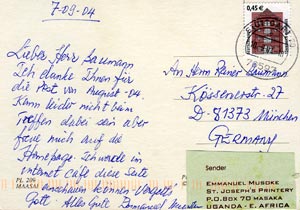 7-09-04
Lieber Herr Laumann
Ich danke Ihnen für
die Post von August-04.
Kann leider nicht beim
Treffen dabei sein aber
freue mich auf die
Homepage. Ich werde in
internet Cafe diese Seite
anschauen können. Vergelts
Gott. Alles Gute Emmanuel Musoke
PL. 206
MAASAI
0,45 €
An Herrn Rainer Laumann
Kössenerstr. 27
D-81373 München
GERMANY
Sender
EMMANUEL MUSOKE
ST. JOSEPH'S PRINTERY
P.O. BOX 70 MASAKA
UGANDA - E. AFRICA